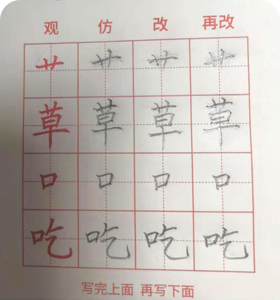 观 仿 改 再改
艹 艹 艹 艹
草 草 草 草
口 口 口 口
吃 吃 吃 吃
写完上面 再写下面